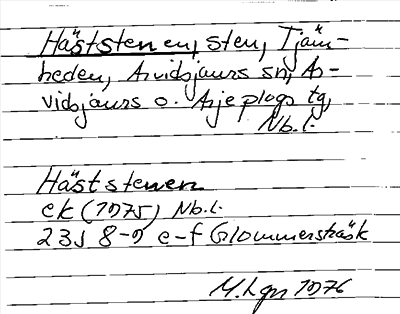 Häststenen, sten, Tjäm-
heden, Arvidsjaurs sn, Ar-
vidsjaurs o. Arjeplogs tg,
Nb.l.
Häststenen
ek (1975) Nb.l.
23J 8-9 e-f Glommersträsk
M.Lgn 1976